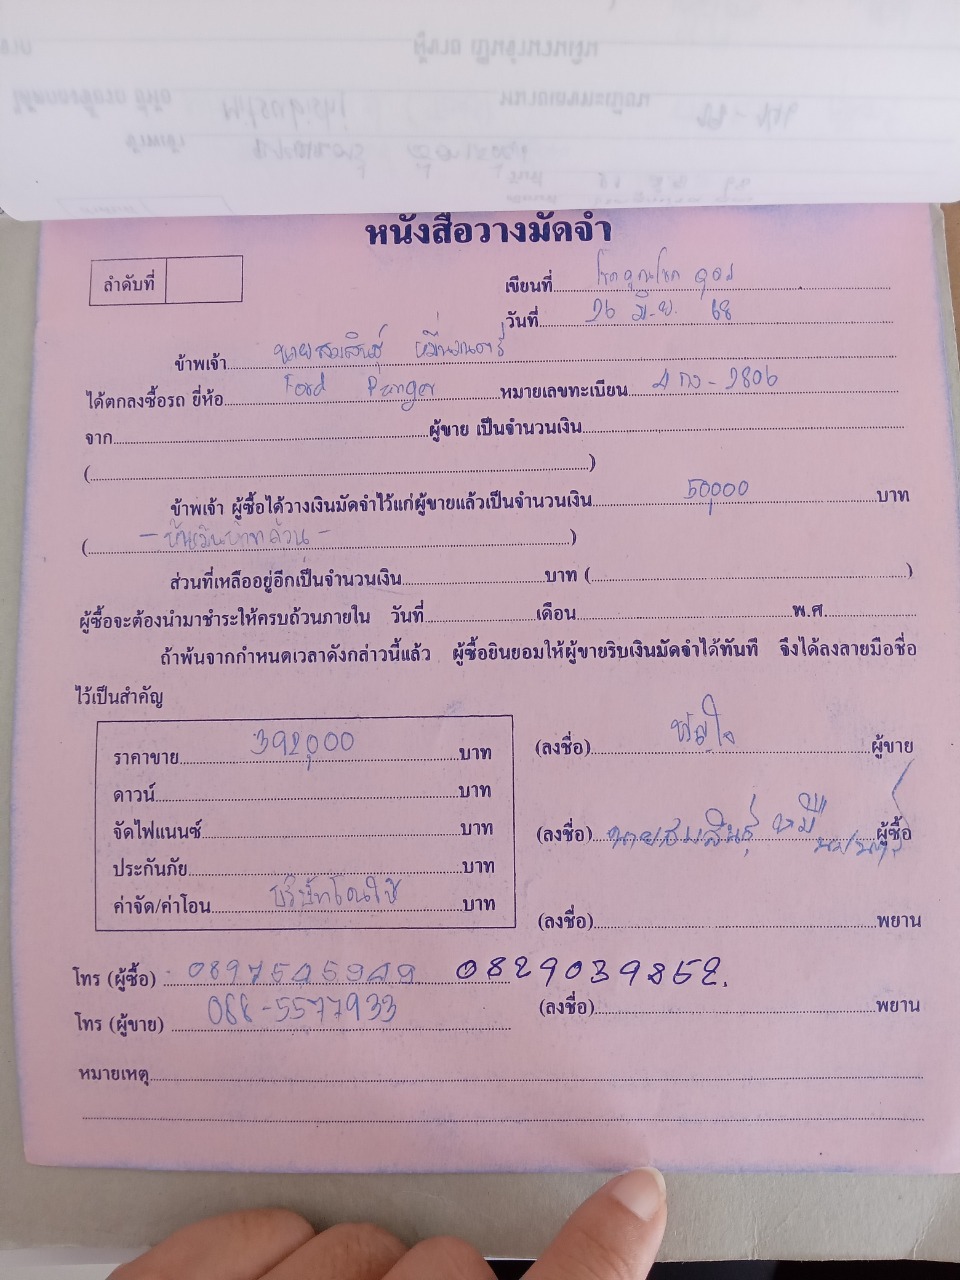 หนังสือวางมัดจำ
ลำดับที่
เขียนที่
วันที่ 26 มิ.ย. 68
ข้าพเจ้า นายสมสินธุ์
ได้ตกลงซื้อรถ ยี่ห้อ Ford Ranger หมายเลขทะเบียน
จาก ผู้ขาย เป็นจำนวนเงิน
( )
ข้าพเจ้า ผู้ซื้อได้วางเงินมัดจำไว้แก่ผู้ขายแล้วเป็นจำนวนเงิน 50,000 บาท
( - ห้าหมื่นบาทถ้วน - )
ส่วนที่เหลืออยู่อีกเป็นจำนวนเงิน บาท ( )
ผู้ซื้อจะต้องนำมาชำระให้ครบถ้วนภายใน วันที่ เดือน พ.ศ.
ถ้าพ้นจากกำหนดเวลาดังกล่าวนี้แล้ว ผู้ซื้อยินยอมให้ผู้ขายริบเงินมัดจำได้ทันที จึงได้ลงลายมือชื่อ
ไว้เป็นสำคัญ
ราคาขาย 392,000 บาท
ดาวน์ บาท
จัดไฟแนนซ์ บาท
ประกันภัย บาท
ค่าจัด/ค่าโอน บริษัทโอนให้ บาท
(ลงชื่อ) ขวัญใจ ผู้ขาย
(ลงชื่อ) นายสมสินธุ์ ผู้ซื้อ
(ลงชื่อ) พยาน
โทร (ผู้ซื้อ) 0829039852.
(ลงชื่อ) พยาน
โทร (ผู้ขาย) 088-5577933
หมายเหตุ